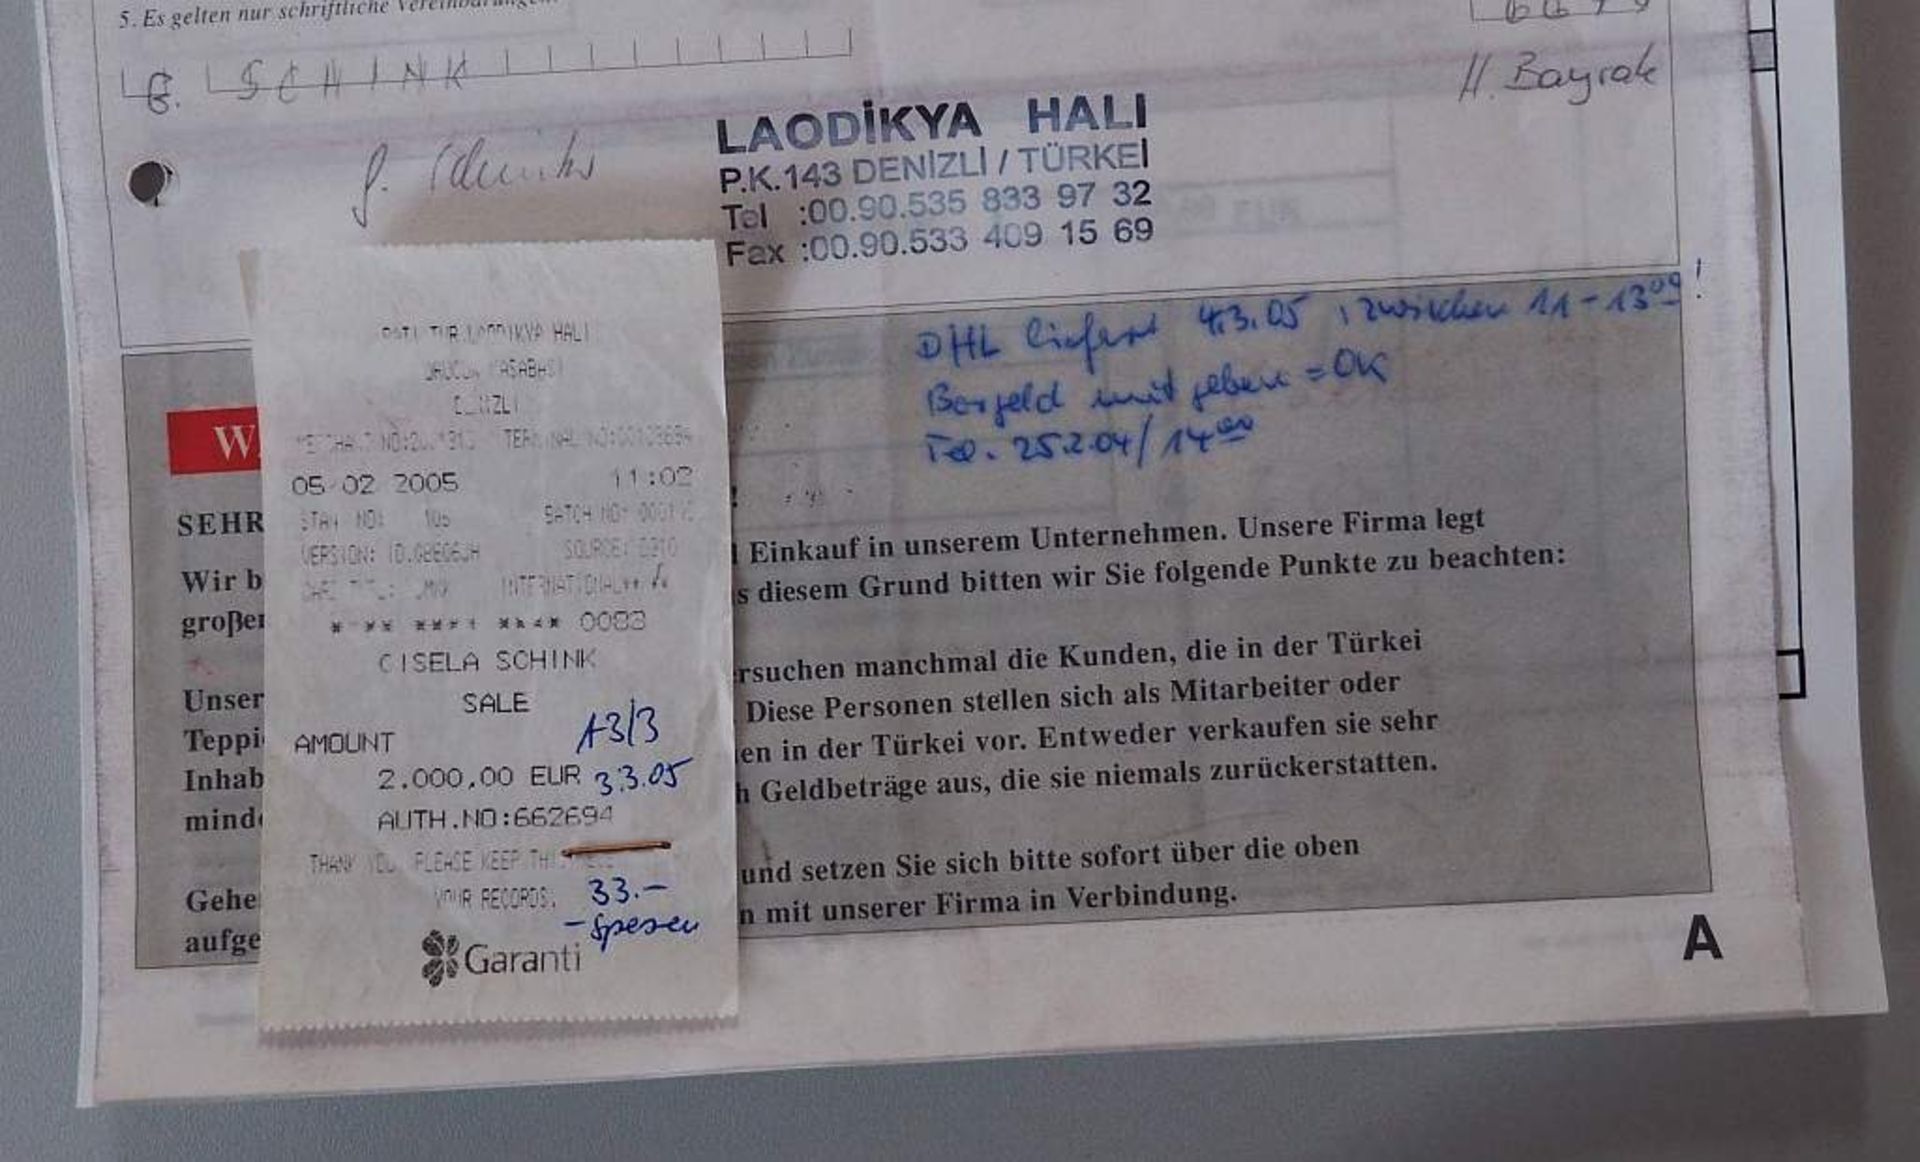 5. Es gelten nur schriftliche Vereinbarungen.
G. SCHINK
H. Bayrak
LAODİKYA HALI
P.K.143 DENİZLİ / TÜRKEİ
Tel :00.90.535 833 97 32
Fax :00.90.533 409 15 69
DHL liefert 4.3.05 zwischen 11-13⁰⁰!
Bargeld mit geben = OK
Tel. 25.2.04/ 14⁰⁰
LAODIKYA HALI
KASABASI
DENIZLI
TERMINAL NO:
05 02 2005 11:02
STAN NO: 106 BATCH NO:
VERSION: SOURCE:
INTERNATIONAL
**** **** 0083
GISELA SCHINK
SALE
AMOUNT 13/3
2.000,00 EUR 3.3.05
AUTH.NO:662694
THANK YOU PLEASE KEEP
YOUR RECORDS. 33.-
-Spesen
Garanti
W
SEHR
Einkauf in unserem Unternehmen. Unsere Firma legt
Wir b
s diesem Grund bitten wir Sie folgende Punkte zu beachten:
großer
rsuchen manchmal die Kunden, die in der Türkei
Unser
Diese Personen stellen sich als Mitarbeiter oder
Teppi
en in der Türkei vor. Entweder verkaufen sie sehr
Inhab
h Geldbeträge aus, die sie niemals zurückerstatten.
minde
und setzen Sie sich bitte sofort über die oben
Gehe
n mit unserer Firma in Verbindung.
aufge
A